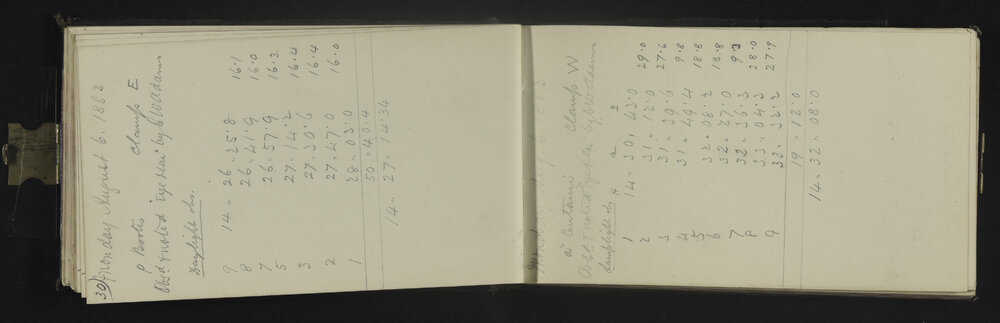 30) Monday August 6. 1883
ρ Bootis Clamp E
Obsd. & noted "Eye & ear" by C W Adams
Daylight obs.
9 14 " 26 " 25.8 16.1
8 26 " 41.9 16.0
7 26 " 57.9 16.3
5 27 " 14.2 16.4
3 27 " 30.6 16.4
2 27 " 47.0 16.0
1 28 " 03.0
50 " 40.4
14 " 27 " 14.34
Monday Aug 6
α² Centauri Clamp W
Obsd & noted Eye & ear by C W Adams
Lamplight obs H m s
1 14 " 30 " 43.0 29.0
2 31 " 12.0 27.6
3 31 " 39.6 9.8
4 31 " 49.4 18.8
5 32 " 08.2 18.8
6 32 " 27.0 9.3
7 32 " 36.3 28.0
8 33 " 04.3 27.9
9 33 " 32.2
19 " 12.0
14 " 32 " 08.0